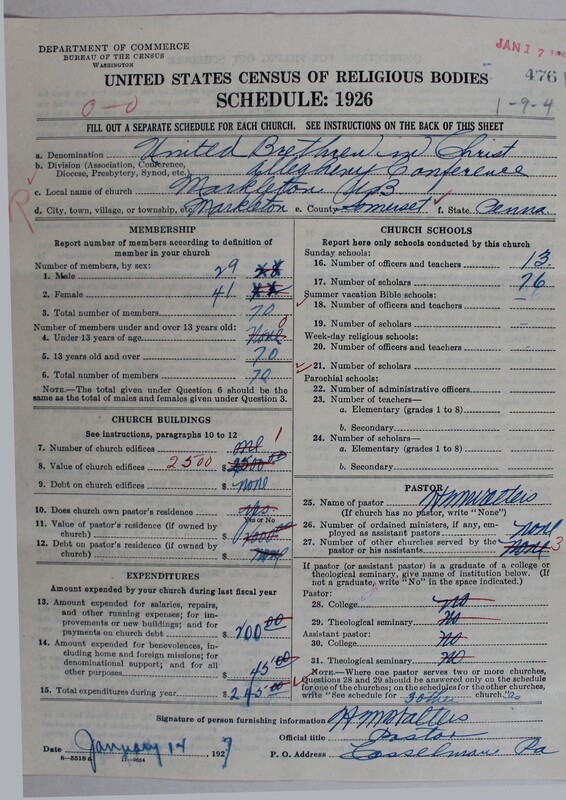 DEPARTMENT OF COMMERCE
BUREAU OF THE CENSUS
WASHINGTON
JAN 17
476
UNITED STATES CENSUS OF RELIGIOUS BODIES
SCHEDULE: 1926
0-0
1-9-4
FILL OUT A SEPARATE SCHEDULE FOR EACH CHURCH. SEE INSTRUCTIONS ON THE BACK OF THIS SHEET
a. Denomination United Brethren in Christ
b. Division (Association, Conference,
Diocese, Presbytery, Synod, etc.) Allegheny Conference
c. Local name of church Markleton UB
d. City, town, village, or township, etc. Markleton e. County Somerset f. State Penna.
R
MEMBERSHIP
Report number of members according to definition of
member in your church
Number of members, by sex:
1. Male 29
2. Female 41
3. Total number of members 70
Number of members under and over 13 years old:
4. Under 13 years of age None 0
5. 13 years old and over 70
6. Total number of members 70
NOTE.—The total given under Question 6 should be
same as the total of males and females given under Question 3.
CHURCH BUILDINGS
See instructions, paragraphs 10 to 12
7. Number of church edifices one 1
8. Value of church edifices 2500 $ 2500.00
9. Debt on church edifices $ None
10. Does church own pastor's residence Yes
Yes or No
11. Value of pastor's residence (if owned by
church) $
12. Debt on pastor's residence (if owned by
church) $ None
EXPENDITURES
Amount expended by your church during last fiscal year
13. Amount expended for salaries, repairs,
and other running expenses; for im-
provements or new buildings; and for
payments on church debt $ 200.00
14. Amount expended for benevolences, in-
cluding home and foreign missions; for
denominational support; and for all
other purposes $ 45.00
15. Total expenditures during year $ 245.00
CHURCH SCHOOLS
Report here only schools conducted by this church
Sunday schools:
16. Number of officers and teachers 13
17. Number of scholars 76
Summer vacation Bible schools:
18. Number of officers and teachers –
19. Number of scholars –
Week-day religious schools:
20. Number of officers and teachers
21. Number of scholars
Parochial schools:
22. Number of administrative officers
23. Number of teachers—
a. Elementary (grades 1 to 8)
b. Secondary
24. Number of scholars—
a. Elementary (grades 1 to 8)
b. Secondary
PASTOR
25. Name of pastor H M Watters
(If church has no pastor, write "None")
26. Number of ordained ministers, if any, em-
ployed as assistant pastors None
27. Number of other churches served by the
pastor or his assistants None 3
If pastor (or assistant pastor) is a graduate of a college or
theological seminary, give name of institution below. (If
not a graduate, write "No" in the space indicated.)
Pastor:
28. College no
29. Theological seminary No
Assistant pastor:
30. College No
31. Theological seminary No
NOTE.—Where one pastor serves two or more churches,
Questions 28 and 29 should be answered only on the schedule
for one of the churches; on the schedules for the other churches,
write "See schedule for 3 other church."
Signature of person furnishing information H M Watters
Official title Pastor
Date January 14, 1927
P. O. Address Casselman Pa
8—5518 a
11—9654